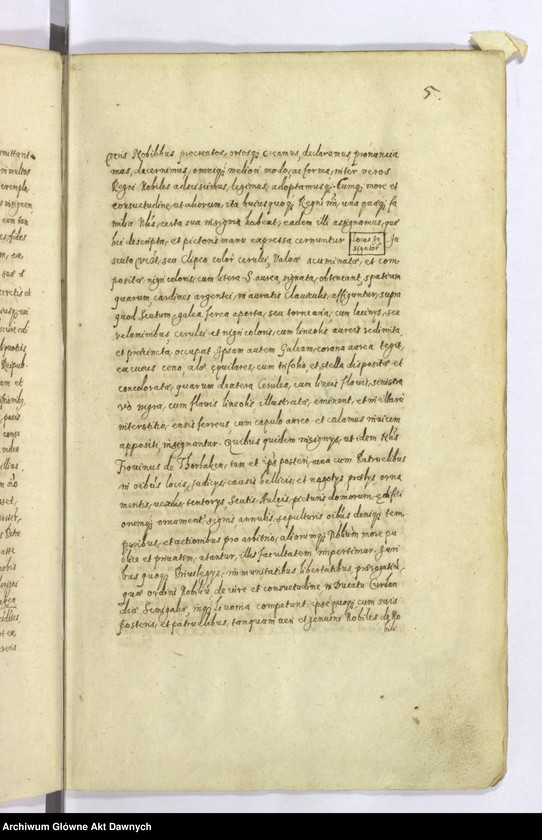 5.
veris Nobilibus procreatos, ortosq3 creamus, declaramus, pronuncia
mus, decernimus, omniq3 meliori modo, ac forma, inter veros
Regni Nobiles adscissimus, legimus, adoptamusq3. Cumq3 more et
consuetudine, ut aliorum, ita huiusquoq3 Regni nri, una quaeq3 fa
milia Nblis, certa sua insignia habeat, eadem illi assignamus, quae
hic descripta, et pictoris manu expressa cernuntur
Locus In
signior
In
scuto vidzt, seu Clipeo color cerulei, Valvae acuminatae, et com
positae nigri coloris, cum litera S. aurea, signata, obtineant, spatium
quarum, cardines argentei, in auratis Clauiculis, affiguntur, supra
quod Scutum, galea ferea aperta, seu tornearia, cum laciniis, seu
velaminibus cerulei et nigri coloris, cum lineolis aureis redimita
et praecincta, occupat. Ipsam autem Galeam, corona aurea tegit,
ex cuius ceno, alae aquilares, cum trifolio et stella dispositae et
concoloratae, quarum dextera Cerulea, cum lineis flavis, sinistra
vero nigra, cum flavis lineolis illustratae, eminent, et in illarum
interstitio, ensis ferreus cum capulo aureo et calamus invicem
appositi, insignantur. Quibus quidem insignys, ut idem Nblis
Thorhaken, tum et ipsi posteri, una cum Patruelibus
in oibus locis, judicys, causis bellicis, et negotys, praelys, orna
mentis, vexillis, tentorys, Scutis, Auleis, picturis domorum, aedifici
orumq3 ornament, signis annulis, sepulturis oibus deniq3 tem
poribus, et actionibus pro arbitrio, aliorumq3 Nobilium more pu
blice et privatim, utantur, illis facultatem impertimur. Juri
bus quoq3 Privilegys, immunitatibus libertatibus, praerogativis,
quae ordini Nobiliu de iure et consuetudine, in Ducatu Curlan
diae Semigaliae, inq3 Livonia competunt, ipse quoq3 cum suis
posteris, et patruelibus, tanquam veri et genuini Nobiles de No
bili
Archiwum Główne Akt Dawnych